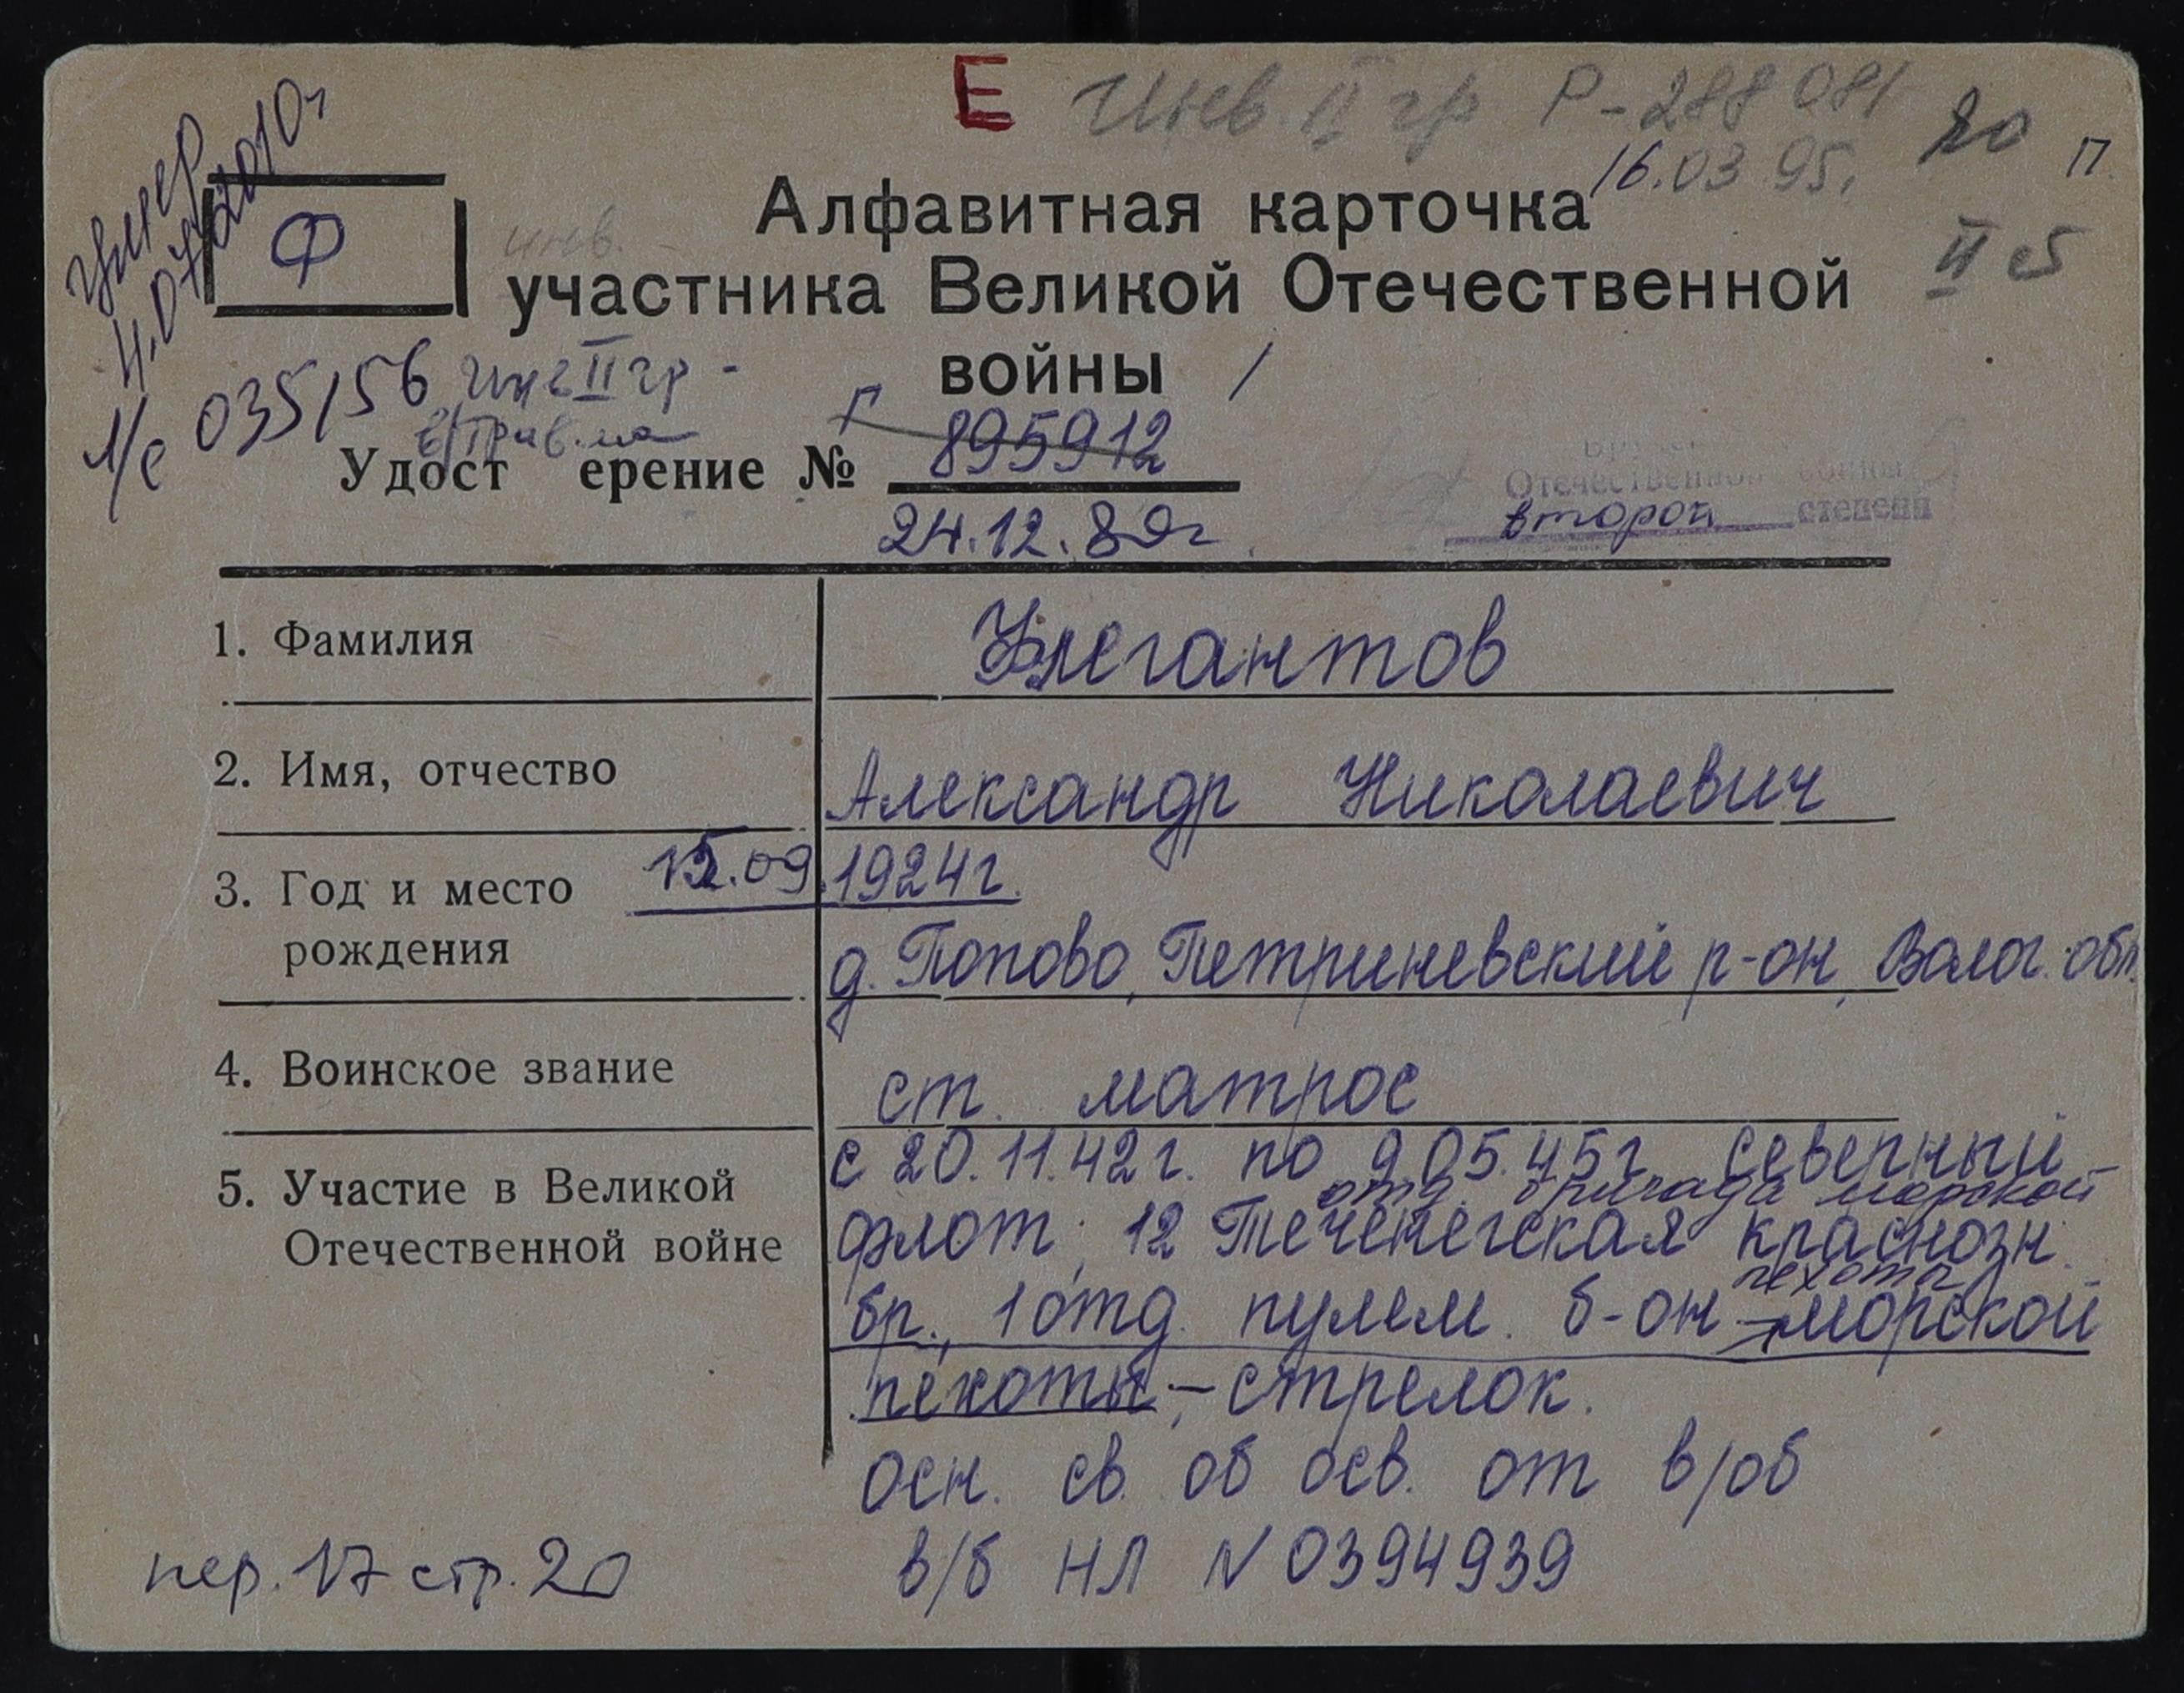 Е Инв. II гр Р-288 081 20
16.03.95. П.
умер
4.07.2010г
Ф
инв.
Алфавитная карточка
участника Великой Отечественной
войны
II
035156
II гр -
Удост ерение № Г 895912
24.12.80г
Отечественной войны
второй степени
1. Фамилия
Улегантов
2. Имя, отчество
Александр Николаевич
3. Год и место
рождения
.09.1924г.
д. Попово, Петриневский р-он, Волог. обл.
4. Воинское звание
ст. матрос
5. Участие в Великой
Отечественной войне
с 20.11.42г. по 9.05.45г. Северный
отд. бригада морской
флот, 12 Печенегская краснозн.
пехоты
бр., 1 отд. пулем. б-он морской
пехоты, - стрелок.
осн. св. об осв. от в/об
в/б НЛ N 0394939
пер. 17 стр. 20